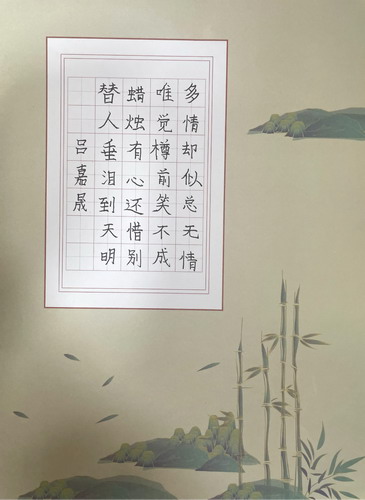 多情却似总无情
唯觉樽前笑不成
蜡烛有心还惜别
替人垂泪到天明
吕嘉晟